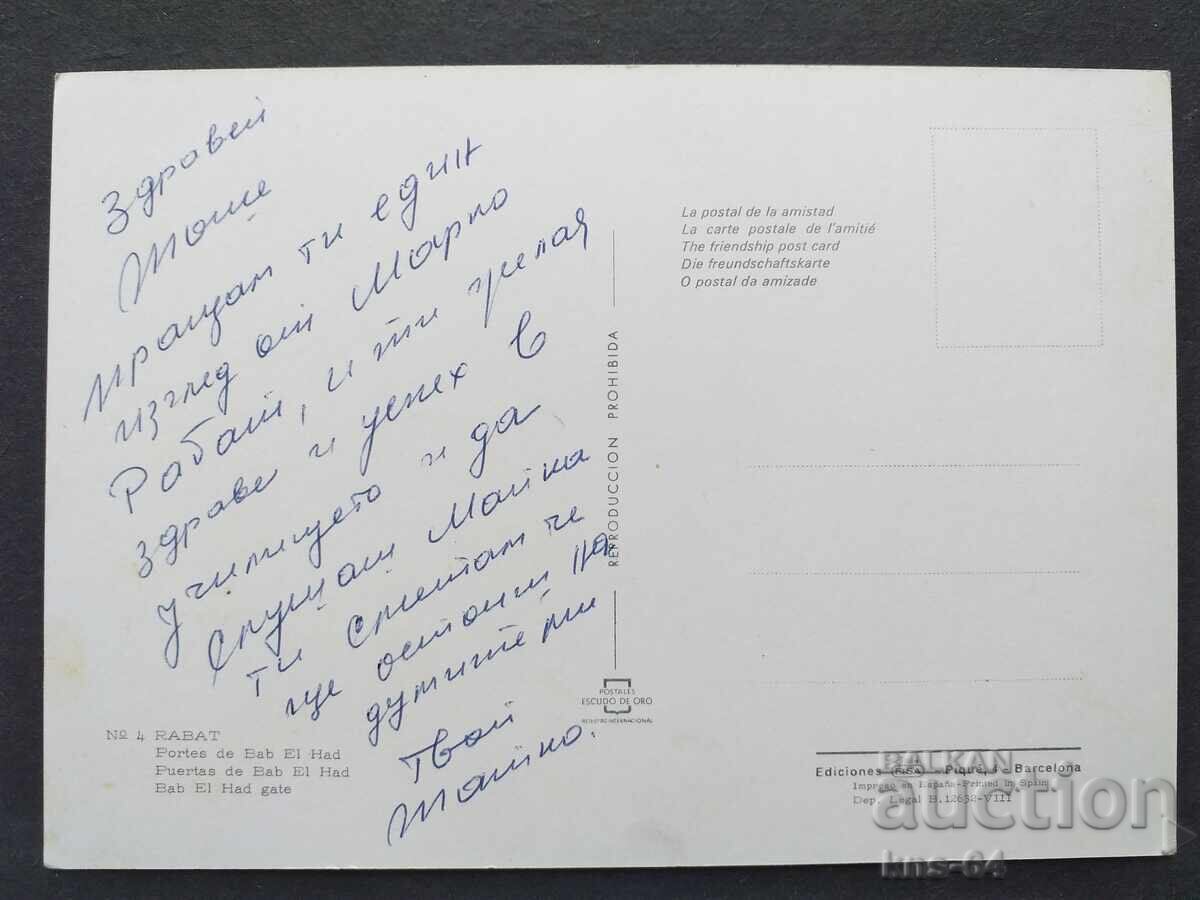 Здравей
Тоше
Иращам ти един
изглед от Мароко
Рабат, и ти желая
здраве и успех в
училището и да
слушаш Майка
ти Смятам че
ще останиш на
думите ми
Твой
Татко.
La postal de la amistad
La carte postale de l'amitié
The friendship post card
Die freundschaftskarte
O postal da amizade
REPRODUCCION PROHIBIDA
POSTALES
ESCUDO DE ORO
REGISTRO INTERNACIONAL
Nº 4 RABAT
Portes de Bab El Had
Puertas de Bab El Had
Bab El Had gate
Ediciones FISA - Piqué, 4 - Barcelona
Impreso en España-Printed in Spain
Dep. Legal B. 12632-VIII
BALKAN
auction
kns-64